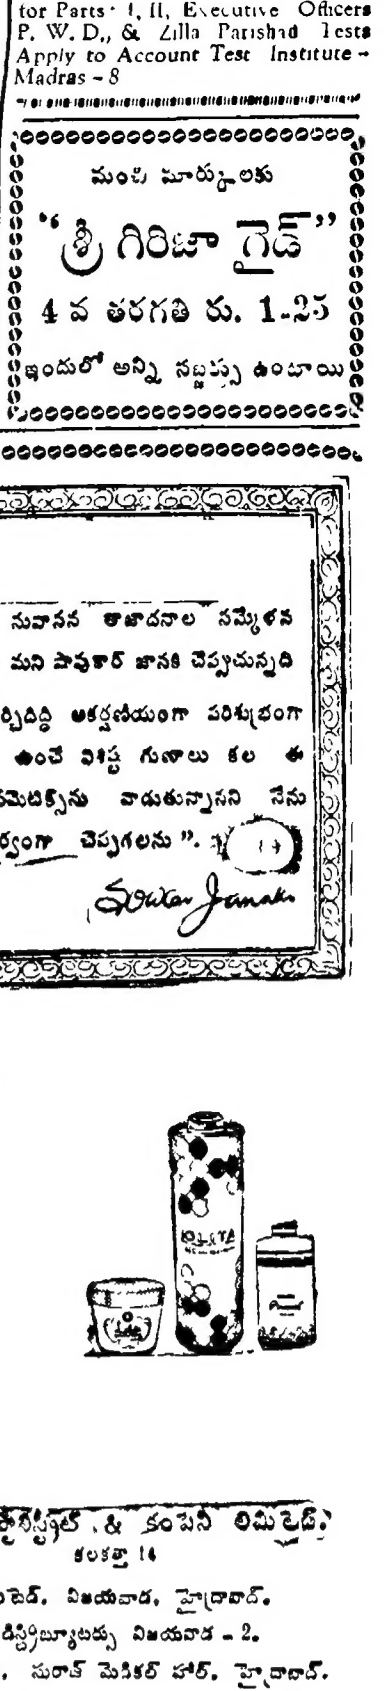 for Parts I, II, Executive Officers
P. W. D., & Zilla Parishad Tests
Apply to Account Test Institute -
Madras - 8
మంచి మార్కులకు
“శ్రీ గిరిజా గైడ్”
4 వ తరగతి రు. 1-25
ఇందులో అన్ని సబ్జక్ట్సు ఉంటాయి
సువాసన తాజాదనాల సమ్మేళన
మని షావుకార్ జానకి చెప్పుచున్నది
ర్చిదిద్ధి ఆకర్షణీయంగా పరిశుభ్రంగా
ఉంచే విశిష్ట గుణాలు కల ఈ
స్మెటిక్స్‌ను వాడుతున్నానని నేను
ర్వంగా చెప్పగలను ”.
Sowcar Janaki
& కంపెనీ లిమిటెడ్.
కలకత్తా 14
టెడ్. విజయవాడ, హైద్రాబాద్.
డిస్ట్రిబ్యూటర్సు విజయవాడ - 2.
సురాజ్ మెడికల్ హాల్, హైద్రాబాద్.